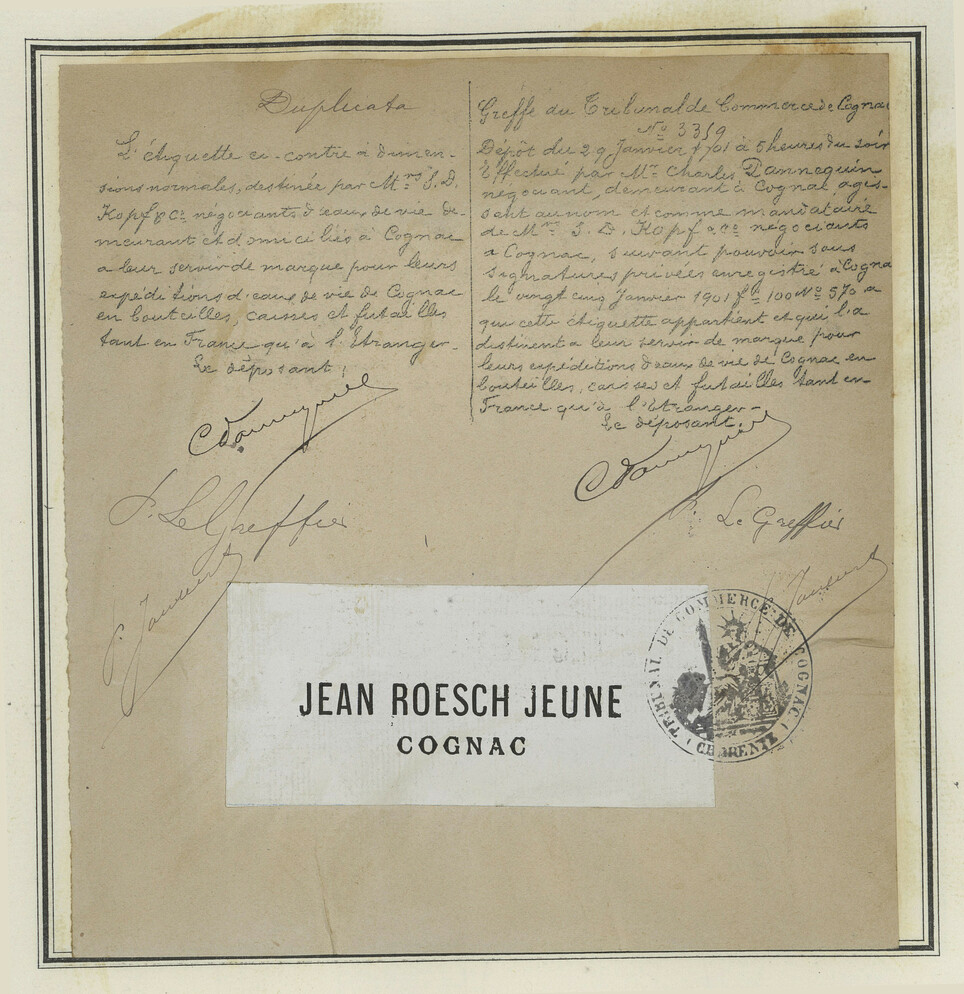 Duplicata
L'étiquette ci-contre à dimen-
sions normales, destinée par Mrs. S. D.
Kopf & Co négociants d'eaux de vie de-
meurant et domiciliés à Cognac
a leur servir de marque pour leurs
expéditions d'eaux de vie de Cognac
en bouteilles, caisses et futailles
tant en France qu'à l'Etranger.
Le déposant,
P. Le Greffier
Greffe du Tribunal de Commerce de Cognac
No 3359
Dépôt du 29 Janvier 1901 à 5 heures du soir
Effectué par Mr. Charles Dannequin
négociant, demeurant à Cognac, agis-
sant au nom et comme mandataire
de Mrs. S. D. Kopf & Co négociants
a Cognac, suivant pouvoir sous
signatures privées enregistré à Cognac
le vingt cinq Janvier 1901 fo 100 No 570 a
qui cette étiquette appartient et qui la
destinent a leur servir de marque pour
leurs expéditions d'eaux de vie de Cognac en
bouteilles, caisses et futailles tant en
France qu'à l'Etranger-
Le déposant.
P. Le Greffier
JEAN ROESCH JEUNE
COGNAC
TRIBUNAL DE COMMERCE DE COGNAC
(CHARENTE)